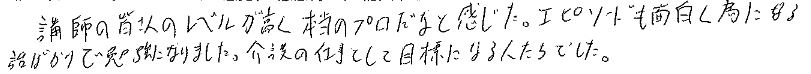 講師の皆さんのレベルが高く本当のプロだなと感じた。エピソードも面白く為になる
話ばかりで勉強になりました。介護の仕事として目標になる人たちでした。